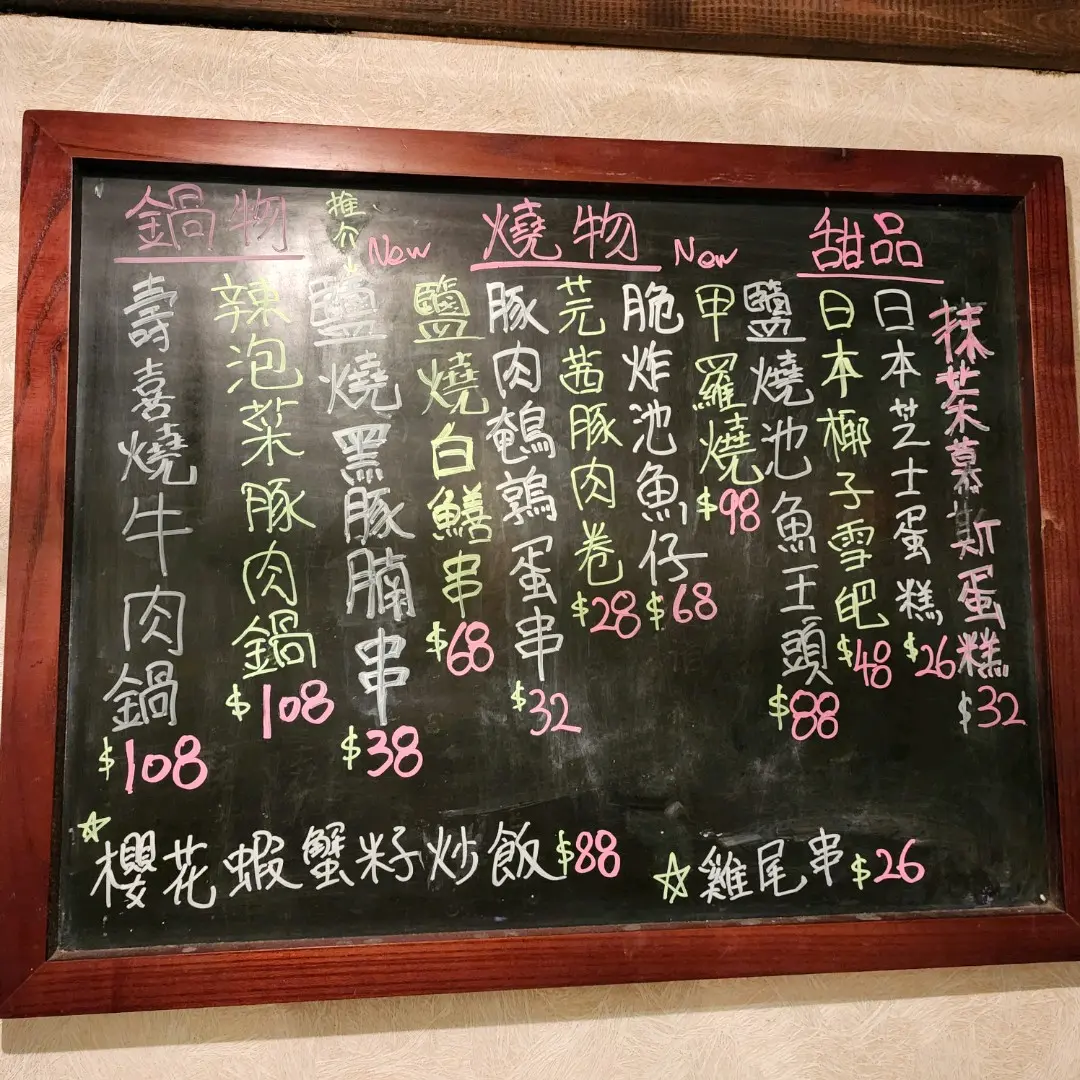 鍋物
壽喜燒牛肉鍋
$108
辣泡菜豚肉鍋
$108
推介
New
燒物
New
鹽燒黑豚腩串
$38
鹽燒白鱔串
$68
豚肉鵪鶉蛋串
$32
芫茜豚肉卷
$28
脆炸池魚仔
$68
甲羅燒
$98
鹽燒池魚王頭
$88
甜品
日本椰子雪吧
$48
日本芝士蛋糕
$26
抹茶慕斯蛋糕
$32
櫻花蝦蟹籽炒飯$88
雞尾串$26